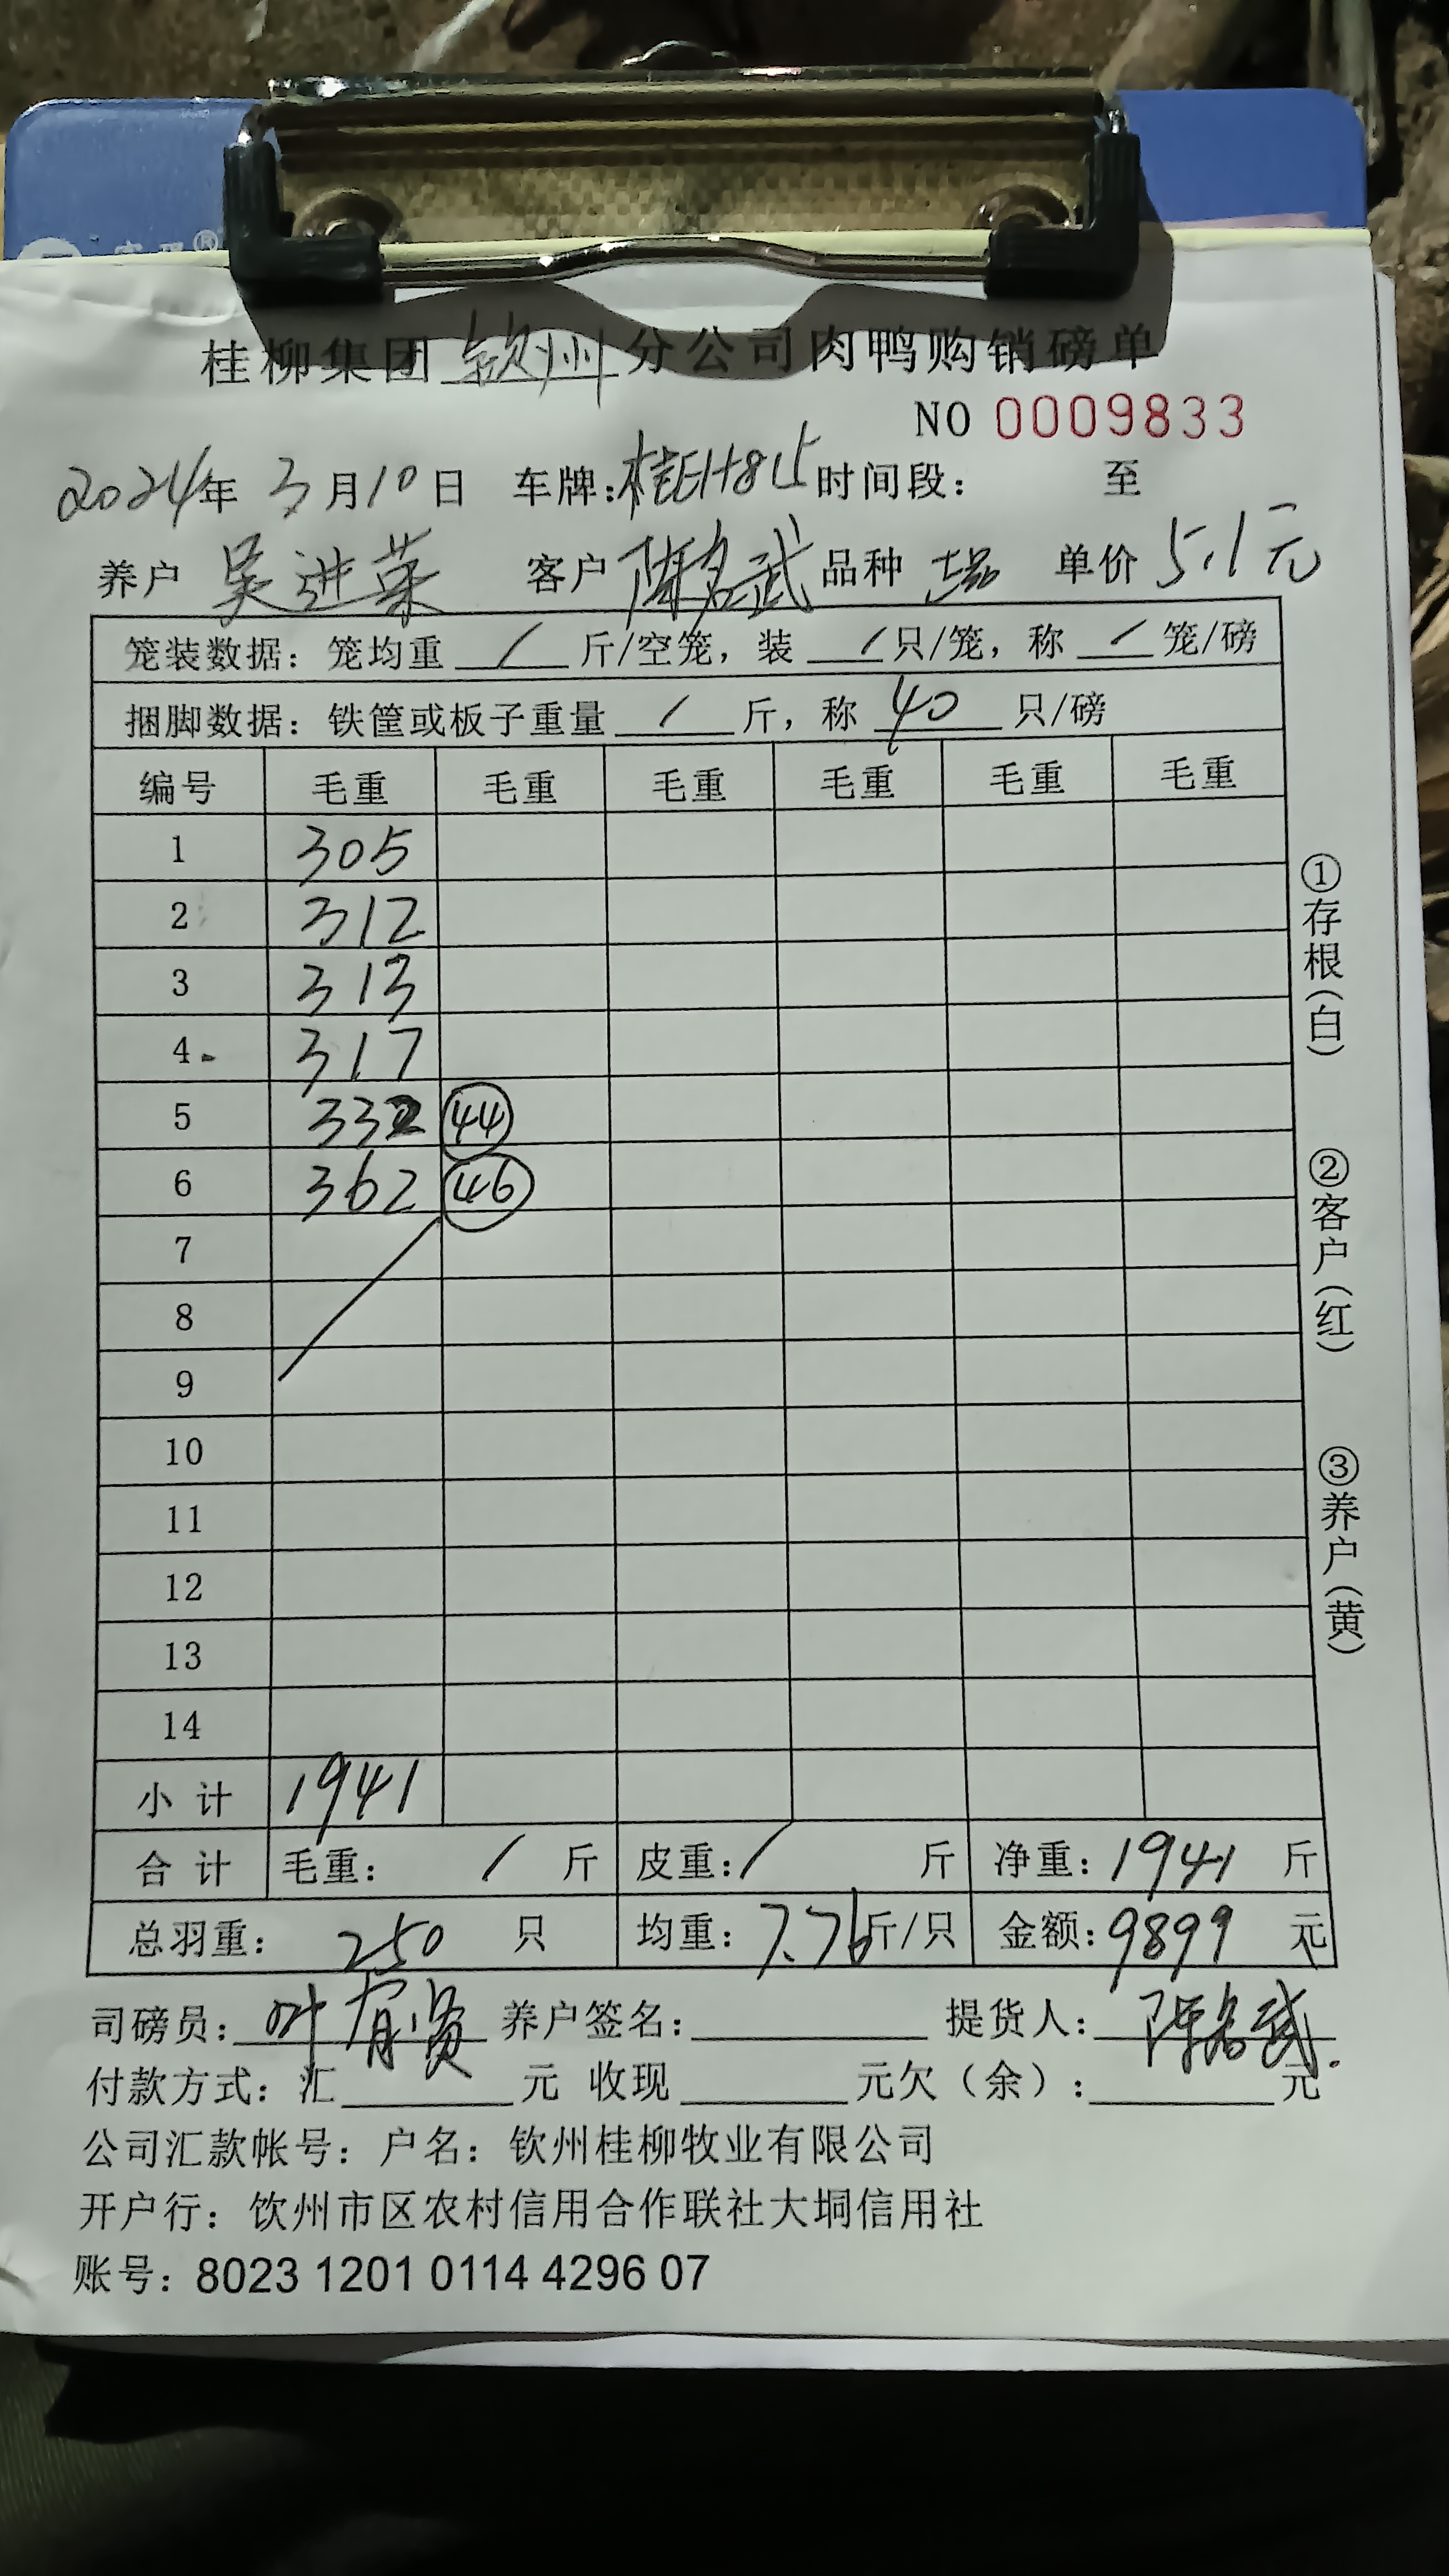 桂柳集团 钦州 分公司肉鸭购销磅单
NO 0009833
2024年 3月10日 车牌:桂EH815 时间段: 至
养户 吴进荣 客户 陈名武 品种 单价 5.1元
笼装数据: 笼均重 / 斤/空笼, 装 / 只/笼, 称 / 笼/磅
捆脚数据: 铁筐或板子重量 / 斤, 称 40 只/磅
编号 毛重 毛重 毛重 毛重 毛重 毛重
1 305
2 312
3 313
4 317
5 332 44
6 362 46
7
8
9
10
11
12
13
14
小计 1941
合计 毛重: / 斤 皮重: / 斤 净重: 1941 斤
总羽重: 250 只 均重: 7.76斤/只 金额: 9899 元
司磅员: 叶 贤 养户签名: 提货人: 陈名武
付款方式: 汇 元 收现 元欠(余): 元
公司汇款帐号: 户名: 钦州桂柳牧业有限公司
开户行: 饮州市区农村信用合作联社大垌信用社
账号: 8023 1201 0114 4296 07
①存根(白)
②客户(红)
③养户(黄)